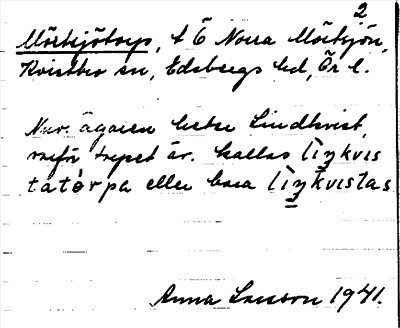 2
Mörtsjötorp, t Ö Norra Mörtsjön,
Kvistbro sn, Edsbergs hd, Ör l.
Nuv. ägaren heter Lindkvist,
varför torpet är. kallas lìŋkvis
tatòrpa eller bara lìŋkvistas.
Anna Larsson 1941.